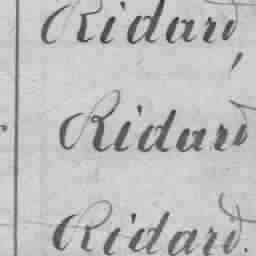 Ridard,
Ridard
Ridard.